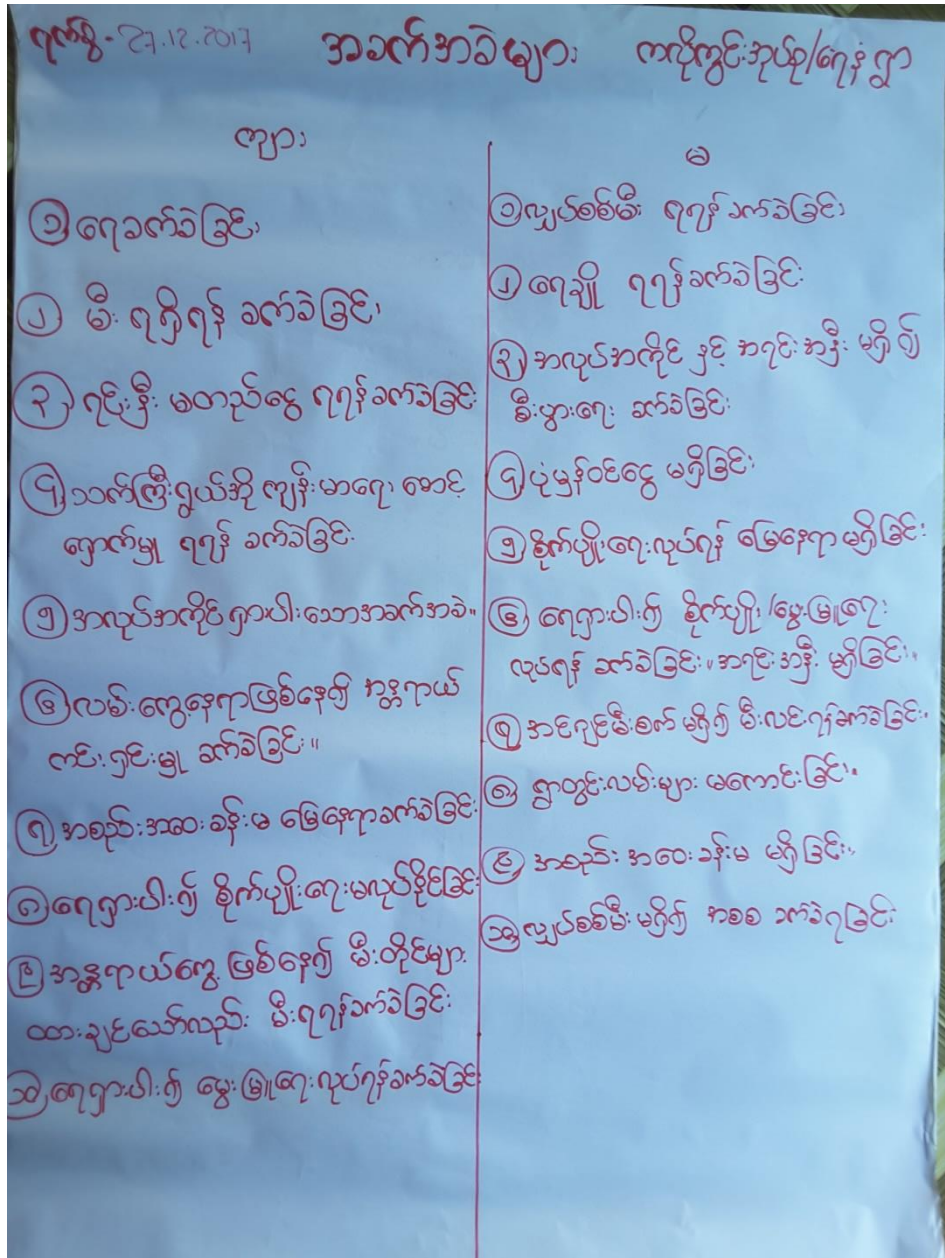 ရက်စွဲ - 27.12.2017 အခက်အခဲများ ကလိုကွင်းအုပ်စု/ရေနံ့ရွာ
ကျား
၁ ရေခက်ခဲခြင်း
၂ မီး ရရှိရန် ခက်ခဲခြင်း
၃ ရင်းနှီး မတည်ငွေ ရရန်ခက်ခဲခြင်း
၄ သက်ကြီးရွယ်အို ကျန်းမာရေး စောင့်
ရှောက်မှု ရရန် ခက်ခဲခြင်း
၅ အလုပ်အကိုင် ရှားပါးသောအခက်အခဲ။
၆ လမ်းကွေ့နေရာဖြစ်နေ၍ အန္တရာယ်
ကင်းရှင်းမှု ခက်ခဲခြင်း။
၇ အစည်းအဝေးခန်းမ မြေနေရာခက်ခဲခြင်း
၈ ရေရှားပါး၍ စိုက်ပျိုးရေးမလုပ်နိုင်ခြင်း
၉ အန္တရာယ်ကွေ့ ဖြစ်နေ၍ မီးတိုင်များ
ထားချင်သော်လည်း မီးရရန်ခက်ခဲခြင်း
၁၀ ရေရှားပါး၍ မွေးမြူရေးလုပ်ရန်ခက်ခဲခြင်း
မ
၁ လျှပ်စစ်မီး ရရန် ခက်ခဲခြင်း
၂ ရေချို ရရန်ခက်ခဲခြင်း
၃ အလုပ်အကိုင် နှင့် အရင်းအနှီး မရှိ၍
စီးပွားရေး ခက်ခဲခြင်း
၄ ပုံမှန်ဝင်ငွေ မရှိခြင်း
၅ စိုက်ပျိုးရေးလုပ်ရန် မြေနေရာ မရှိခြင်း
၆ ရေရှားပါး၍ စိုက်ပျိုး/မွေးမြူရေး
လုပ်ရန် ခက်ခဲခြင်း။ အရင်းအနှီး မရှိခြင်း။
၇ အင်ဂျင်မီးစက် မရှိ၍ မီးလင်းရန်ခက်ခဲခြင်း။
၈ ရွာတွင်းလမ်းများ မကောင်းခြင်း။
၉ အစည်းအဝေးခန်းမ မရှိခြင်း။
၁၀ လျှပ်စစ်မီးမရှိ၍ အစစ ခက်ခဲရခြင်း